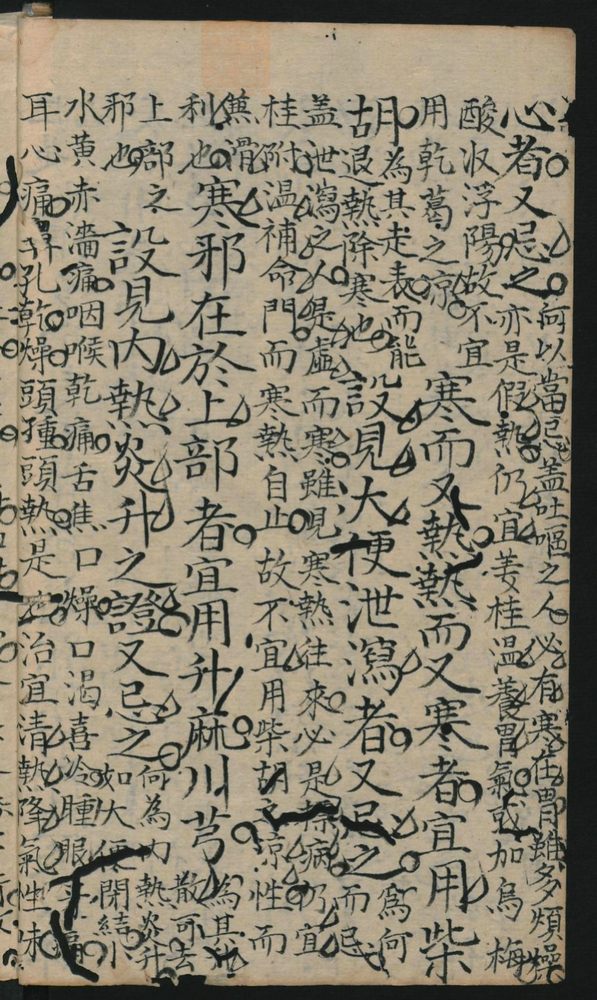 心者又忌之何以當忌蓋吐嘔之人必有寒在胃雖多煩燥
亦是假熱仍宜姜桂溫養胃氣或加烏梅
酸收浮陽故不宜
用乾葛之涼
寒而又熱熱而又寒者宜用柴
胡為何
為其走表而能
退熱除寒也
設見大便泄瀉者又忌之而忌
蓋泄瀉之人是虛而寒雖見寒熱往來必是病仍宜
桂附溫補命門而寒熱自止故不宜用柴胡之涼性而
焦滑
利也
寒邪在於上部者宜用升麻川芎為其
散可去
上部之
邪也
設見內熱炎升之證又忌之何為內熱炎升
如大便閉結小
水黃赤濇痛咽喉乾痛舌焦口燥口渴喜冷腫眼牙痛
耳心痛鼻孔乾燥頭種頭熱是治宜清熱降氣性未